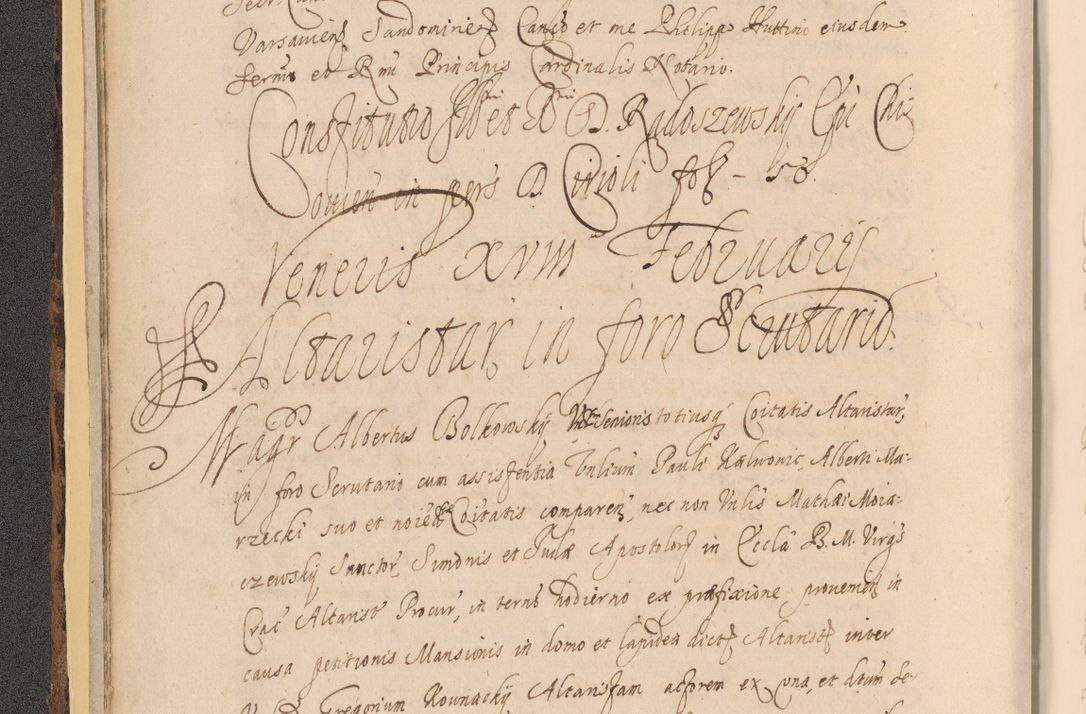 Varsavien Sandomirien Canco et me Philippo Huttini eiusdem
Sermi et Rmi Principis Cardinalis Notario.
Constitutio Illri et Rmi D. Radoszewskij Epi Chi
ovien in pers D. Cirioli fol - 58.
Veneris XVIII Februarij
Altaristar in foro Scrutario
Magr Albertus Bolkowskij Senioris totiusq Coitatis Altaristar,
in foro Scrutario cum assistentia Vnlium Pauli Alberti Ma-
rzecki suo et noie Coitatis comparen, nec non Vnlis Mathaei Moia-
czewskij Sanctor, Simonis et Judae Apostolor in Eccla B. M. Virgs
Crac Altarist Procur, in terno hodierno ex praefixione provenien in
causa petitionis Mansionis in domo et lapidea dict Altarist inter
V. D. Gregorium Rownackij Altaristam actorem ex vna, et dtum Se-